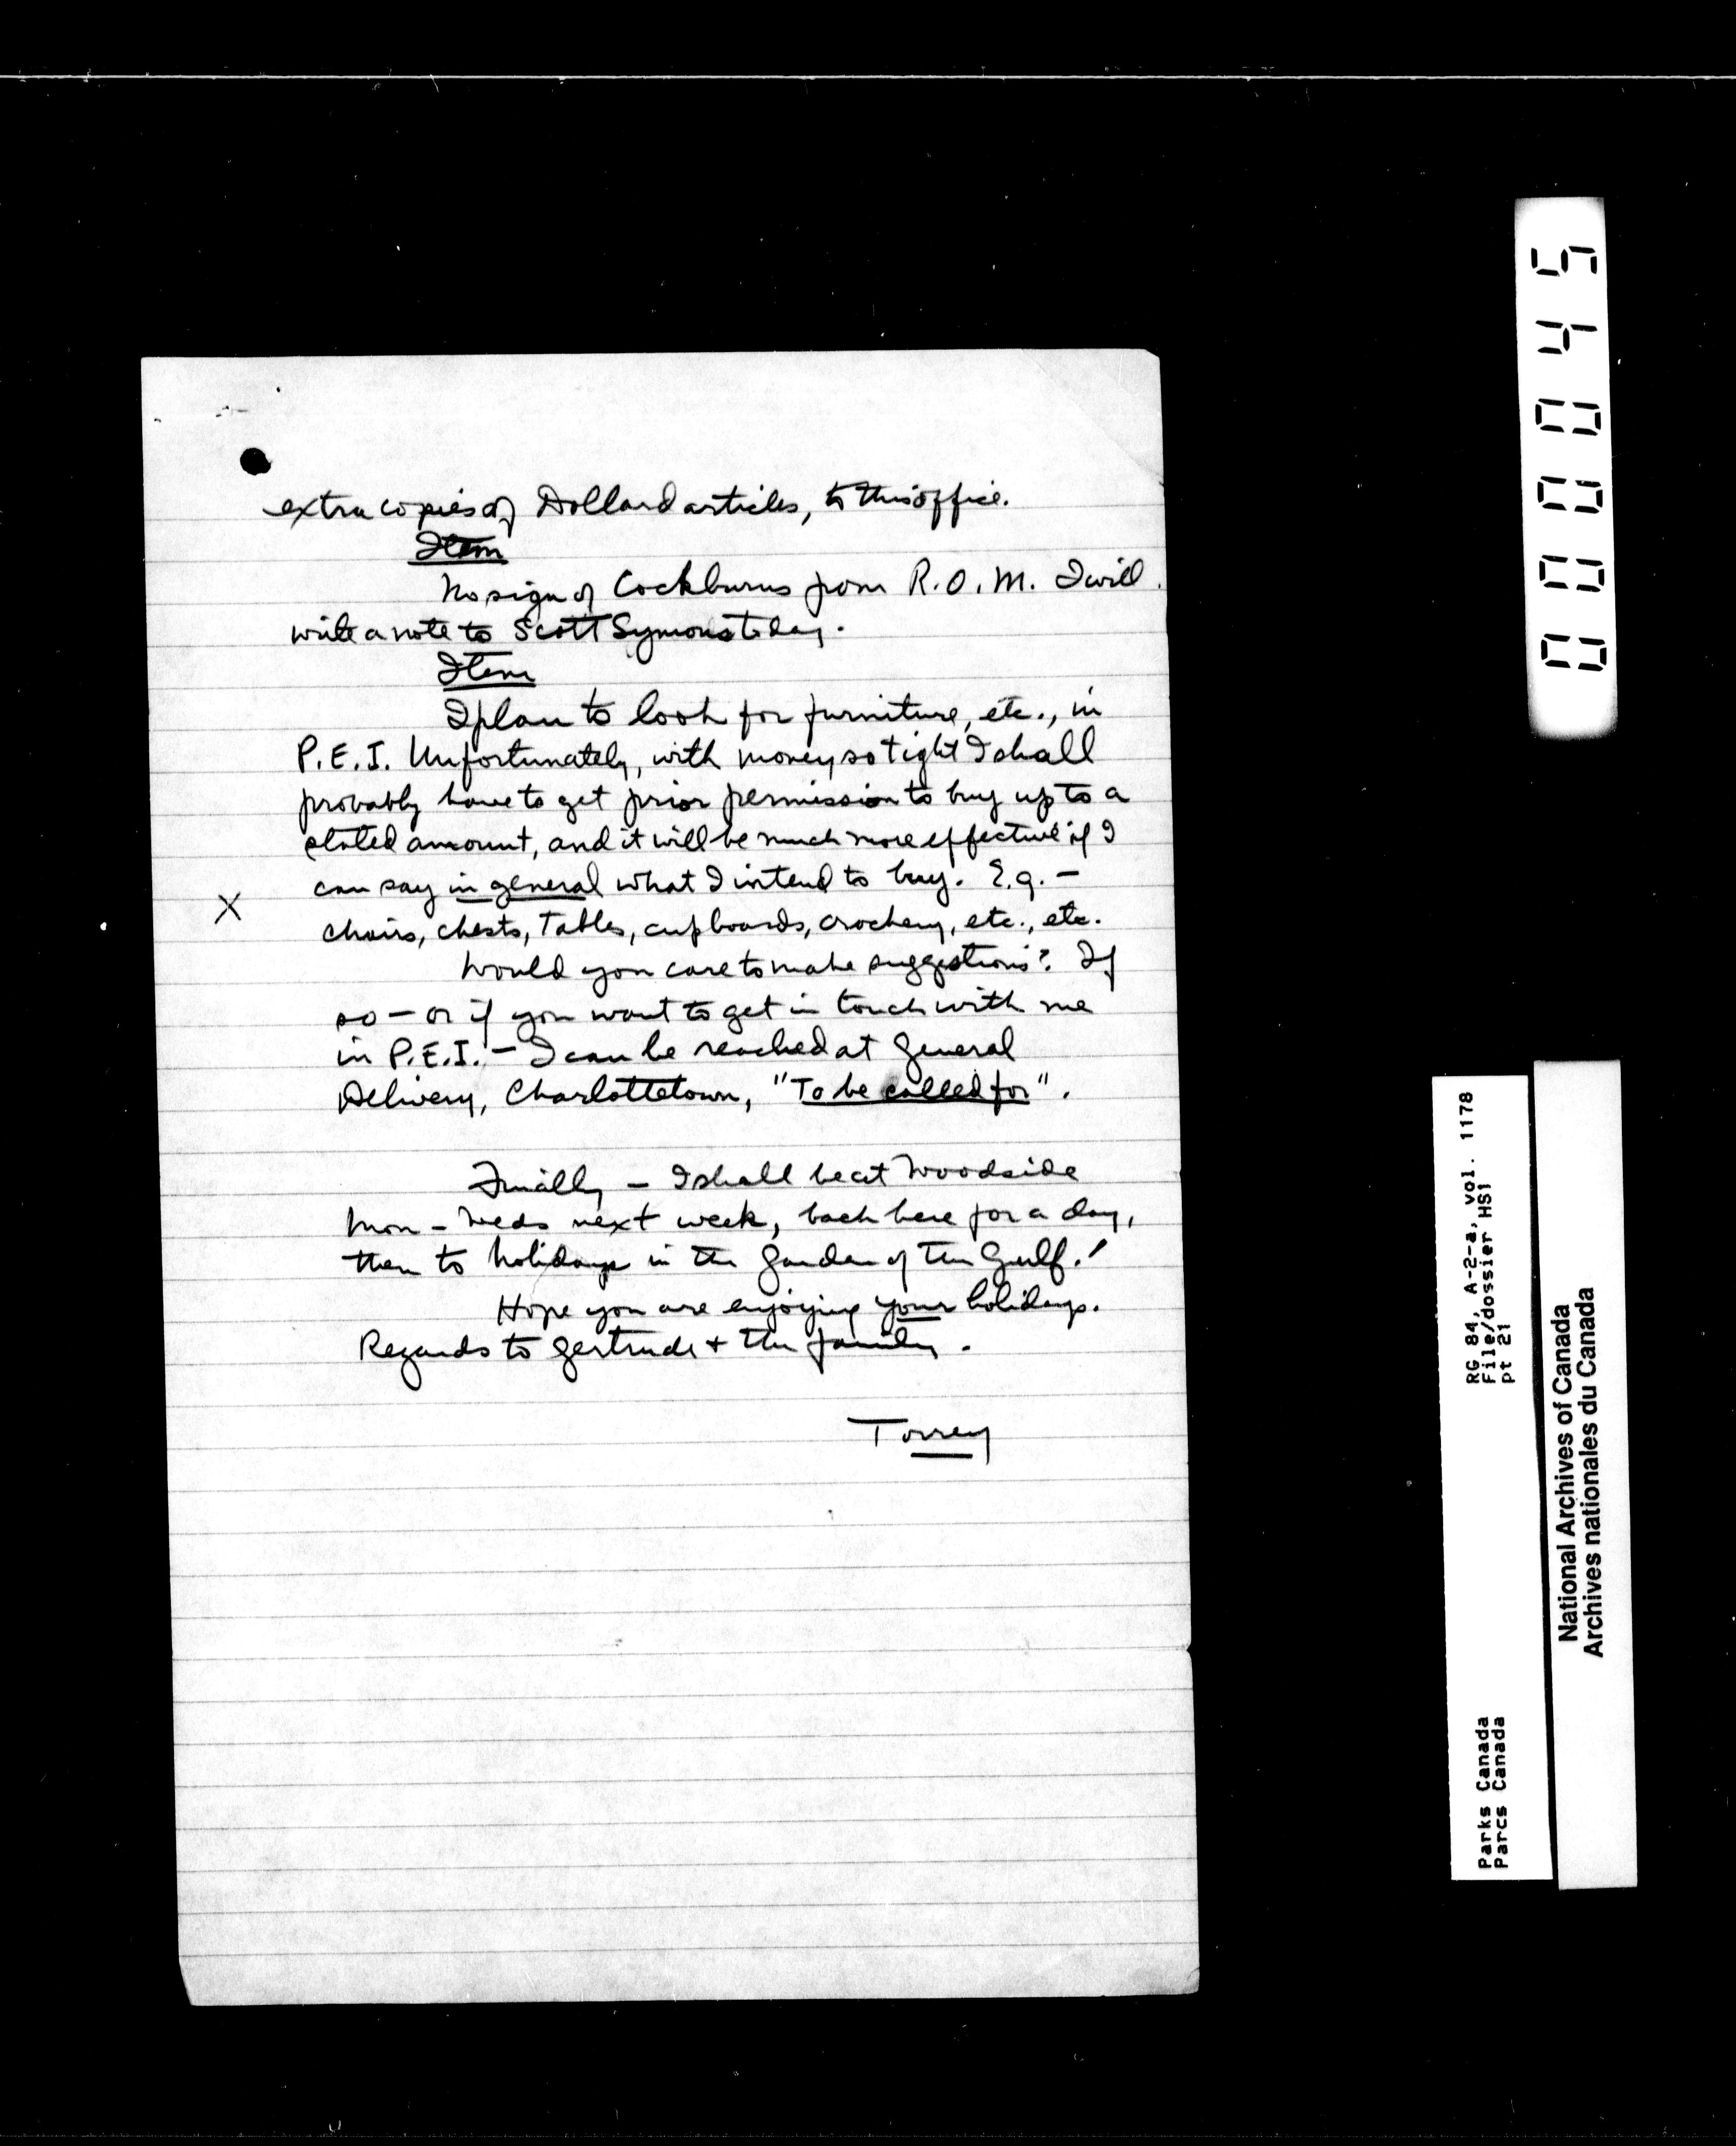 extra copies of Dollard articles, to this office.
Item
No sign of Cockburns from R.O.M. I will
write a note to Scott Symons today.
Item
I plan to look for furniture, etc., in
P.E.I. Unfortunately, with money so tight I shall
probably have to get prior permission to buy up to a
stated amount, and it will be much more effective if I
can say in general what I intend to buy. E.g. –
X
chairs, chests, tables, cupboards, crockery, etc., etc.
Would you care to make suggestions? If
so – or if you want to get in touch with me
in P.E.I. – I can be reached at General
Delivery, Charlottetown, "To be called for".
Finally – I shall be at Woodside
Mon – Weds next week, back here for a day,
then to holidays in the Garden of the Gulf!
Hope you are enjoying your holidays.
Regards to Gertrude + the family.
Torrey
000045
RG 84, A-2-a, vol. 1178
File/dossier HS1
pt 21
Parks Canada
Parcs Canada
National Archives of Canada
Archives nationales du Canada